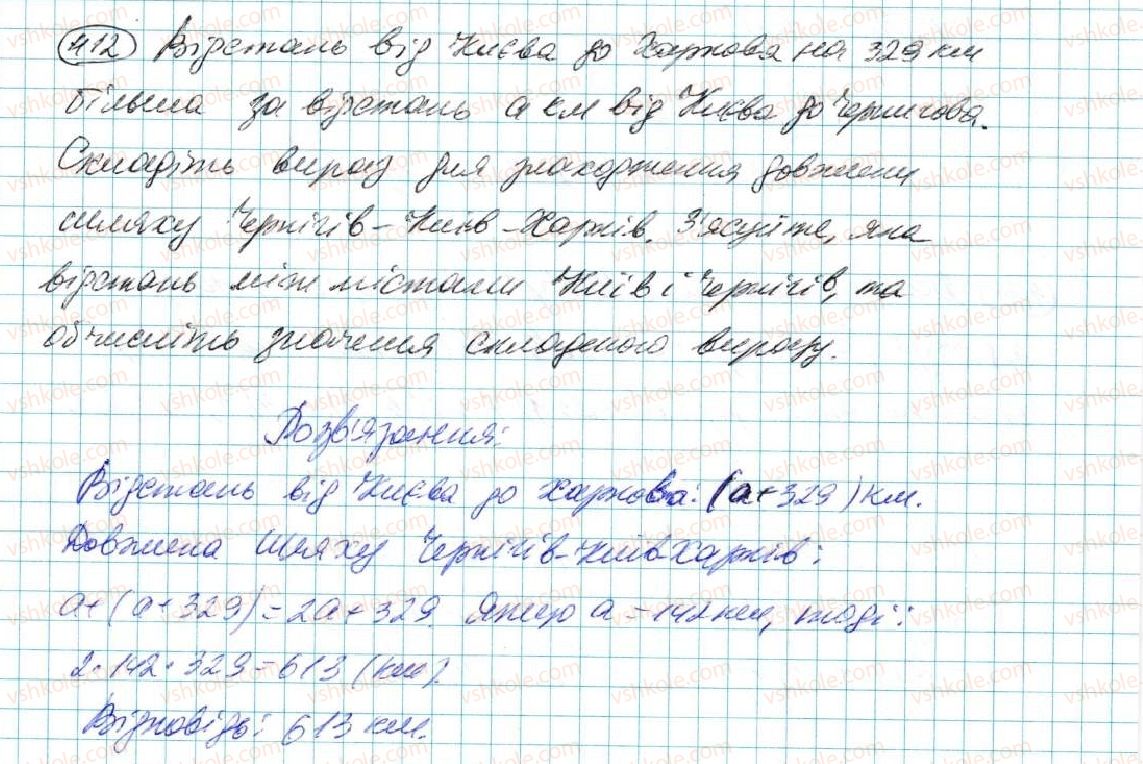 412 Відстань від Києва до Харкова на 329 км
більша за відстань a км від Києва до Чернігова.
Складіть вираз для знаходження довжини
шляху Чернігів-Київ-Харків. З'ясуйте, яка
відстань між містами Київ і Чернігів, та
обчисліть значення складеного виразу.
Розв'язання:
Відстань від Києва до Харкова: (a+329) км.
Довжина шляху Чернігів-Київ-Харків:
a+(a+329)=2a+329. Якщо a=142 км, тоді:
2·142·329=613 (км).
Відповідь: 613 км.